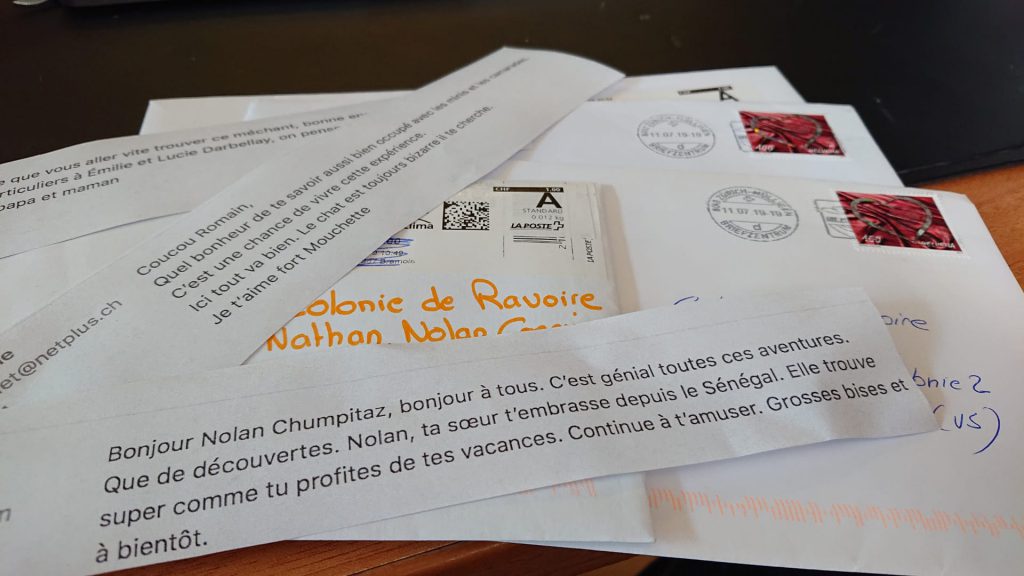 e que vous aller vite trouver ce méchant, bonne
articuliers à Émilie et Lucie Darbellay, on
papa et maman
Coucou Romain,
Quel bonheur de te savoir aussi bien occupé avec les minis et les camarades.
C'est une chance de vivre cette expérience.
Ici tout va bien. Le chat est toujours bizarre il te cherche.
Je t'aime fort Mouchette
et@netplus.ch
A
11 07 19-19
100
CHF 1.00
A
STANDARD
0.012 kg
LA POSTE
LA POSTE
ZÜRICH-MÜLLIGEN
11 07 19-19
d
BRIEFZENTRUM
100
HELVETIA
Colonie de Ravoire
Nathan Nolan
oire
onie 2
(VS)
Bonjour Nolan Chumpitaz, bonjour à tous. C'est génial toutes ces aventures.
Que de découvertes. Nolan, ta sœur t'embrasse depuis le Sénégal. Elle trouve
super comme tu profites de tes vacances. Continue à t'amuser. Grosses bises et
à bientôt.